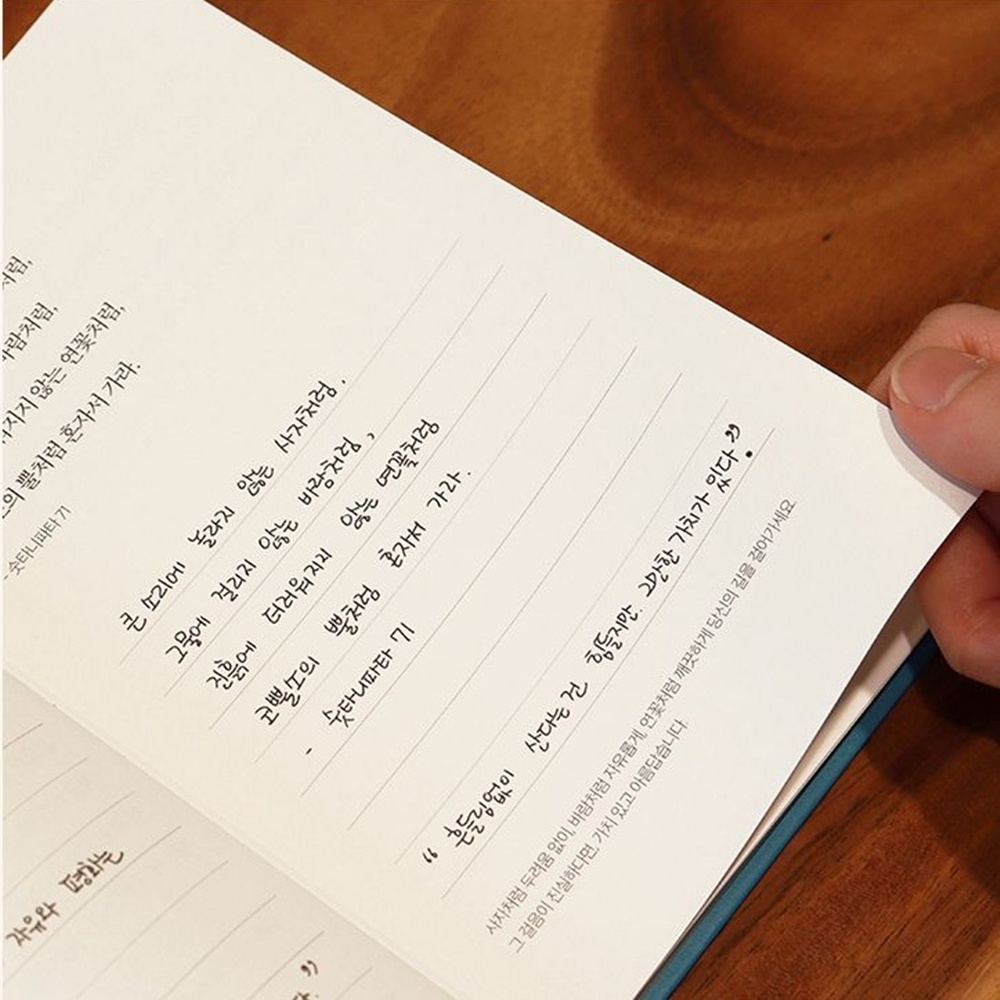 처럼,
바람처럼,
지지 않는 연꽃처럼,
의 뿔처럼 혼자서 가라.
- 숫타니파타 기
큰 소리에 놀라지 않는 사자처럼.
그물에 걸리지 않는 바람처럼,
진흙에 더러워지지 않는 연꽃처럼
코뿔소의 뿔처럼 혼자서 가라.
- 숫타니파타 기
“흔들림없이 산다는 건 힘들지만. 그만한 가치가 있다.”
사자처럼 두려움 없이, 바람처럼 자유롭게, 연꽃처럼 깨끗하게 당신의 길을 걸어가세요.
그 걸음이 진실하다면, 가치 있고 아름답습니다.
자유와 평화는
”